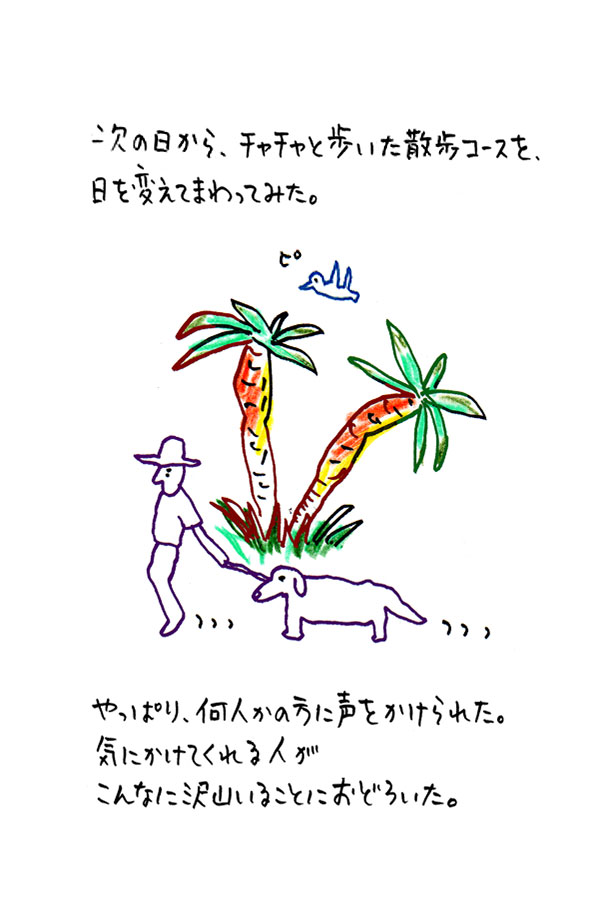 次の日から、チャチャと歩いた散歩コースを、
日を変えてまわってみた。
ピ
やっぱり、何人かの方に声をかけられた。
気にかけてくれる人が
こんなに沢山いることにおどろいた。